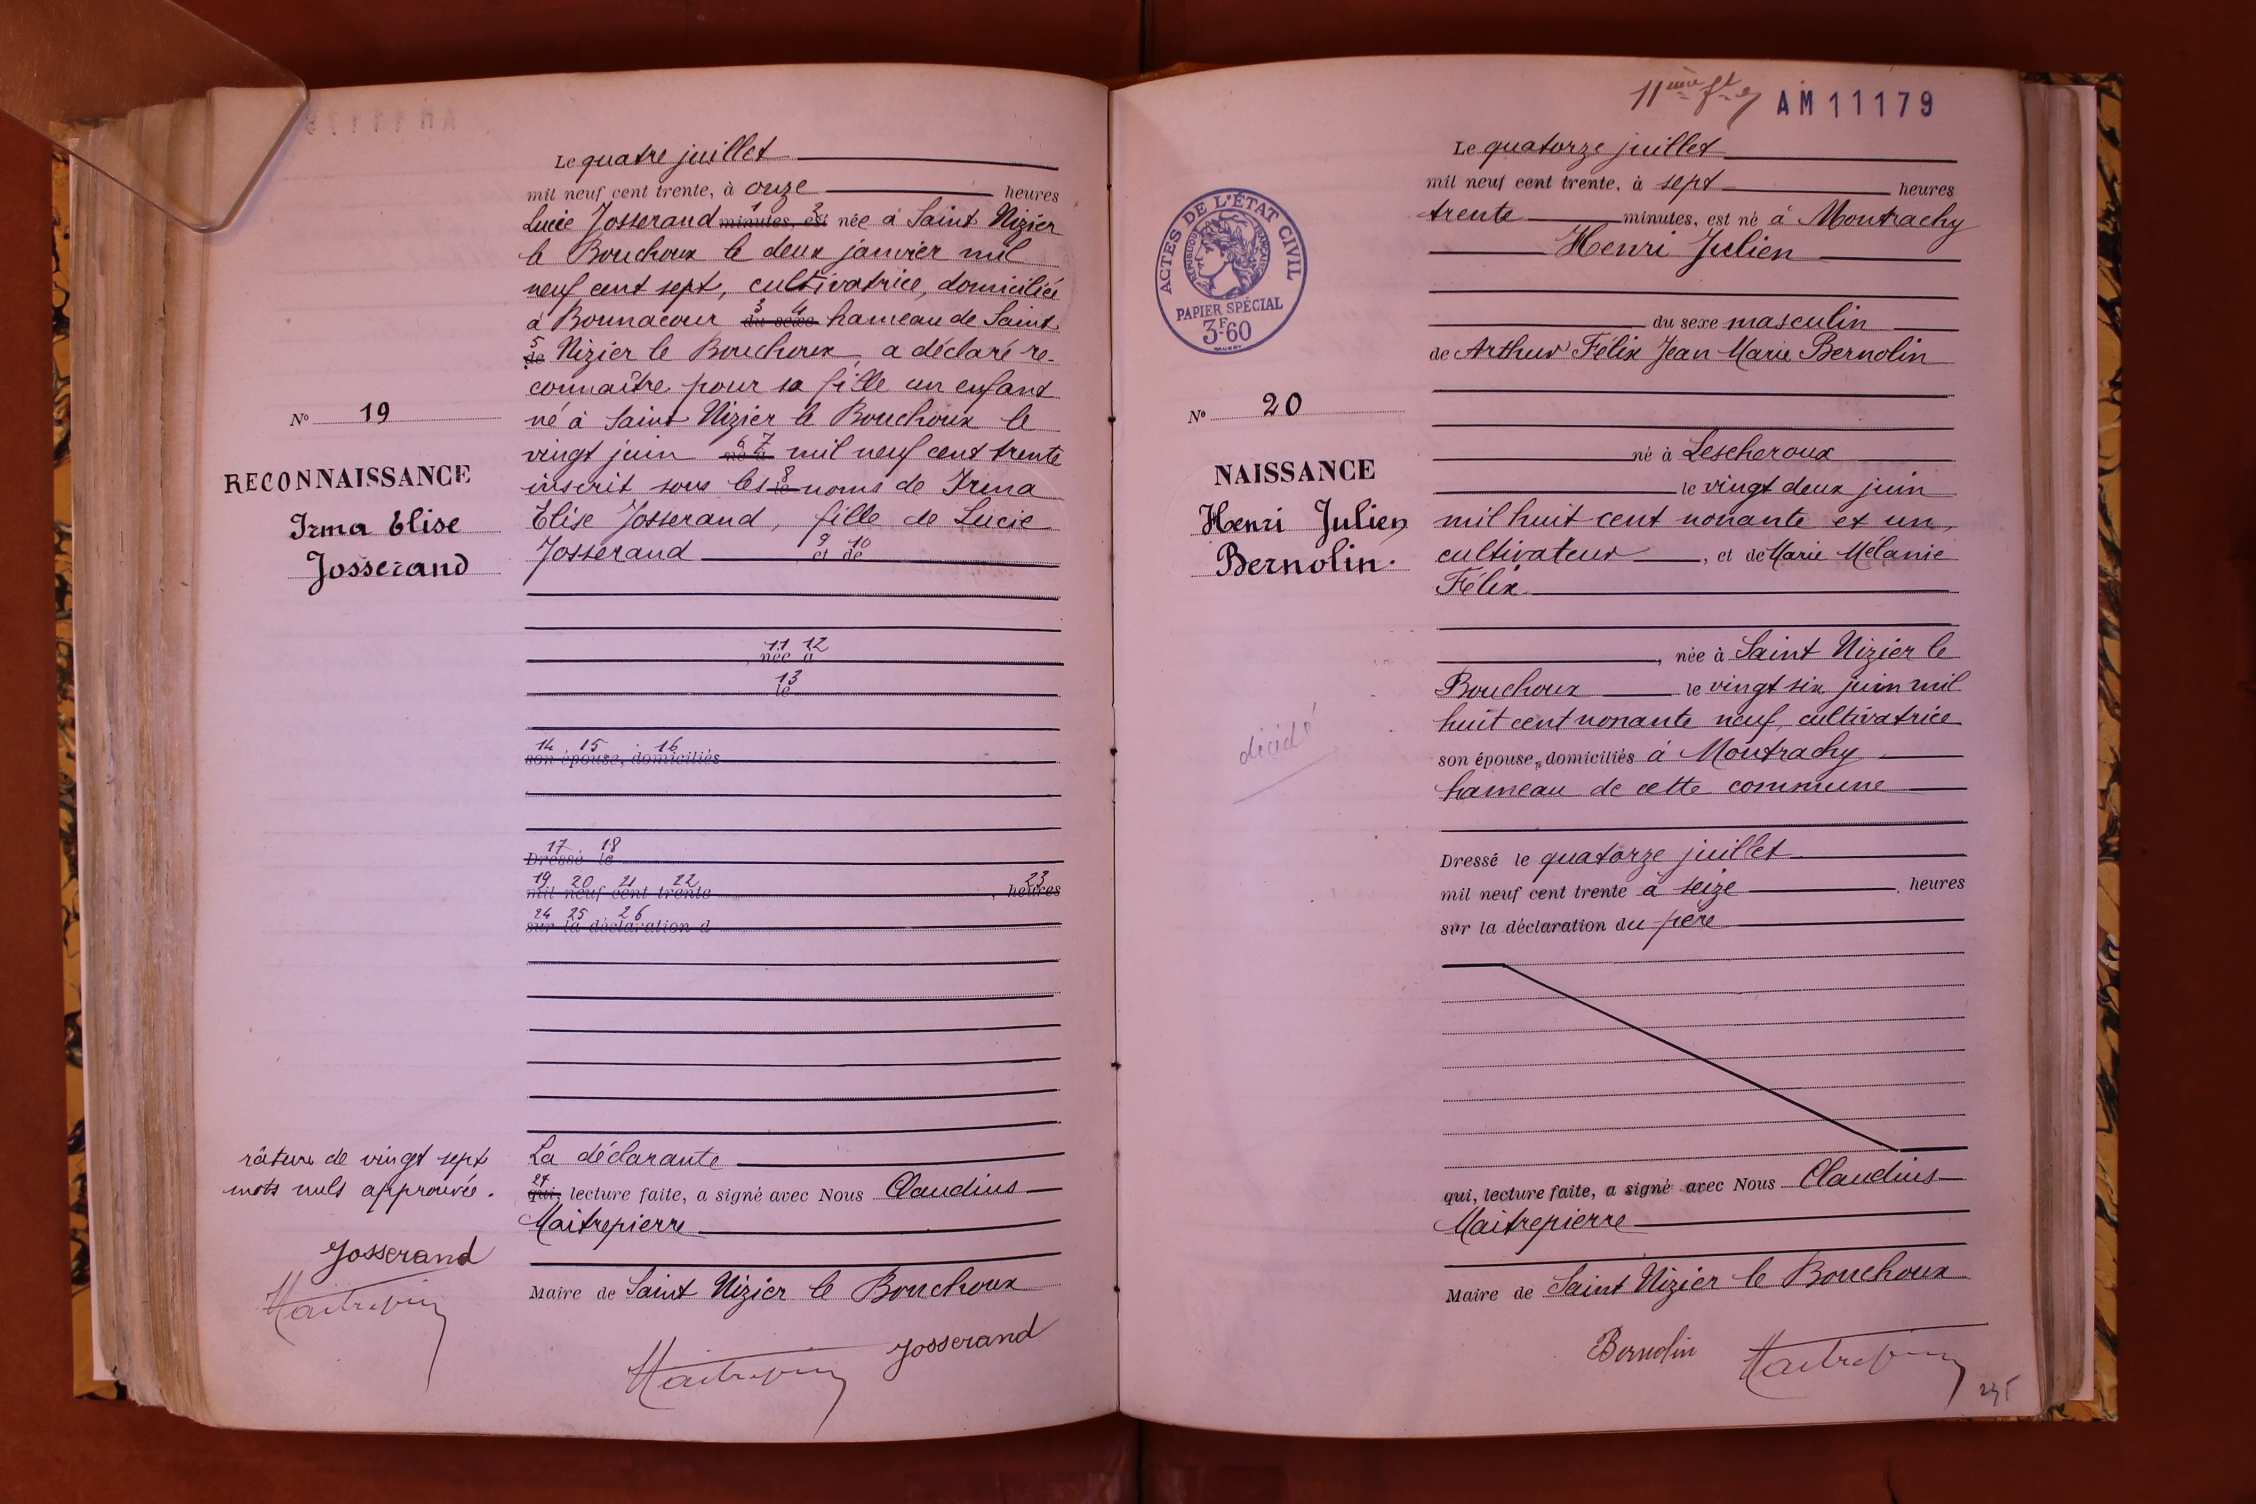 Le quatre juillet
mil neuf cent trente, à onze heures
Lucie Josserand minutes, est née à Saint Nizier
le Bouchoux le deux janvier mil
neuf cent sept, cultivatrice, domiciliée
à Bonnacour du sexe hameau de Saint
de Nizier le Bouchoux, a déclaré re-
connaître pour sa fille un enfant
né à Saint Nizier le Bouchoux le
vingt juin né à mil neuf cent trente
inscrit sous les le noms de Irma
Elise Josserand, fille de Lucie
Josserand et de
11 12
, née à
13
le
14 15 16
son épouse, domiciliés
17 18
Dressé le
19 20 21 22 23
mil neuf cent trente , heures
24 25 26
sur la déclaration d
La déclarante
27
qui, lecture faite, a signé avec Nous Claudius
Maitrepierre
Maire de Saint Nizier le Bouchoux
Maitrepierre Josserand
N° 19
RECONNAISSANCE
Irma Elise
Josserand
râture de vingt sept
mots nuls approuvée.
Josserand
Maitrepierre
11ème
AM11179
Le quatorze juillet
mil neuf cent trente, à sept heures
trente minutes, est né à Montrachy
Henri Julien
du sexe masculin
de Arthur Félix Jean Marie Bernolin
né à Lescheroux
le vingt deux juin
mil huit cent nonante et un,
cultivateur , et de Marie Mélanie
Félix
, née à Saint Nizier le
Bouchoux le vingt six juin mil
huit cent nonante neuf, cultivatrice
son épouse, domiciliés à Montrachy
hameau de cette commune
Dressé le quatorze juillet
mil neuf cent trente à seize , heures
sur la déclaration du père
qui, lecture faite, a signé avec Nous Claudius
Maitrepierre
Maire de Saint Nizier le Bouchoux
Bernolin Maitrepierre
ACTES DE L'ÉTAT CIVIL
RÉPUBLIQUE FRANÇAISE
PAPIER SPÉCIAL
3F60
N° 20
NAISSANCE
Henri Julien
Bernolin.
décidé